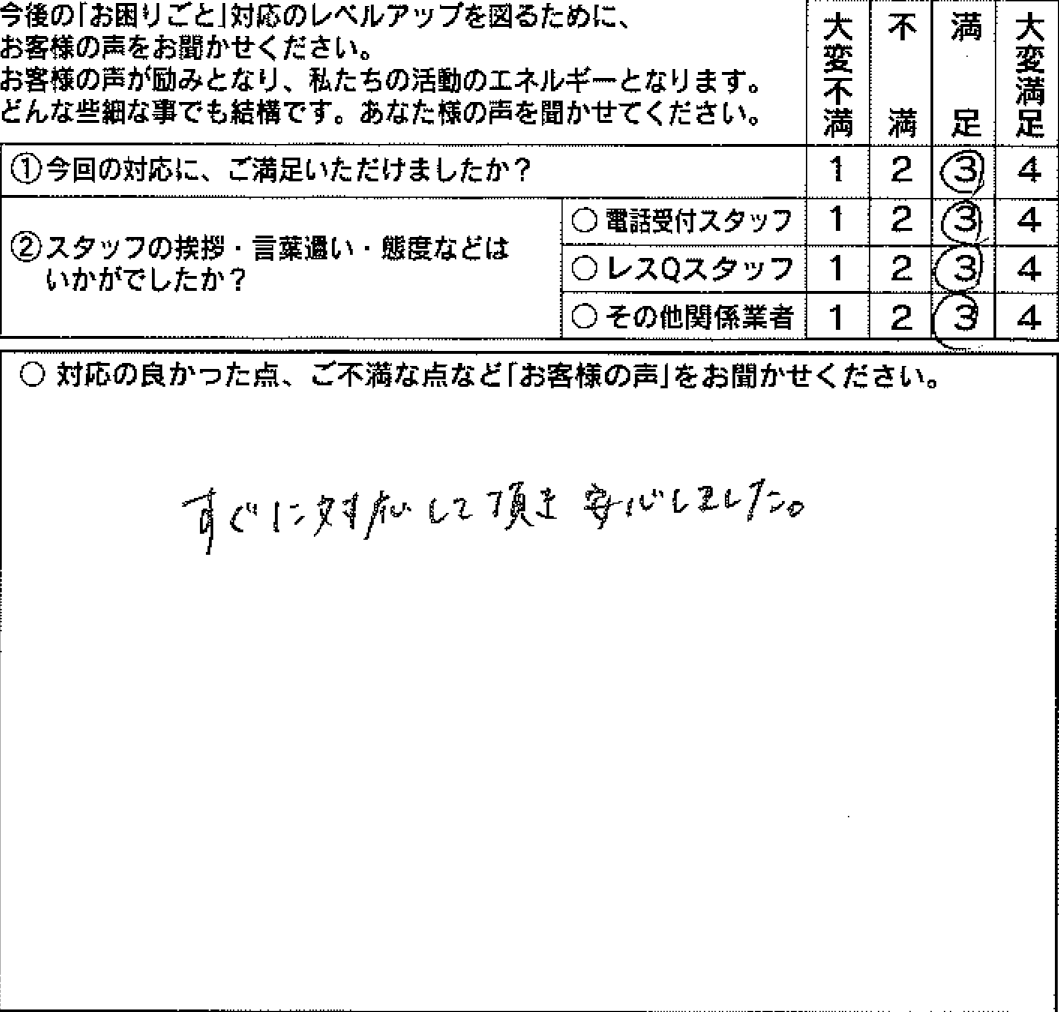 今後の「お困りごと」対応のレベルアップを図るために、
お客様の声をお聞かせください。
お客様の声が励みとなり、私たちの活動のエネルギーとなります。
どんな些細な事でも結構です。あなた様の声を聞かせてください。
大変不満 不満 満足 大変満足
①今回の対応に、ご満足いただけましたか？ 1 2 3 4
②スタッフの挨拶・言葉遣い・態度などは
いかがでしたか？
○電話受付スタッフ 1 2 3 4
○レスQスタッフ 1 2 3 4
○その他関係業者 1 2 3 4
○ 対応の良かった点、ご不満な点など「お客様の声」をお聞かせください。
すぐに対応して頂き安心しました。